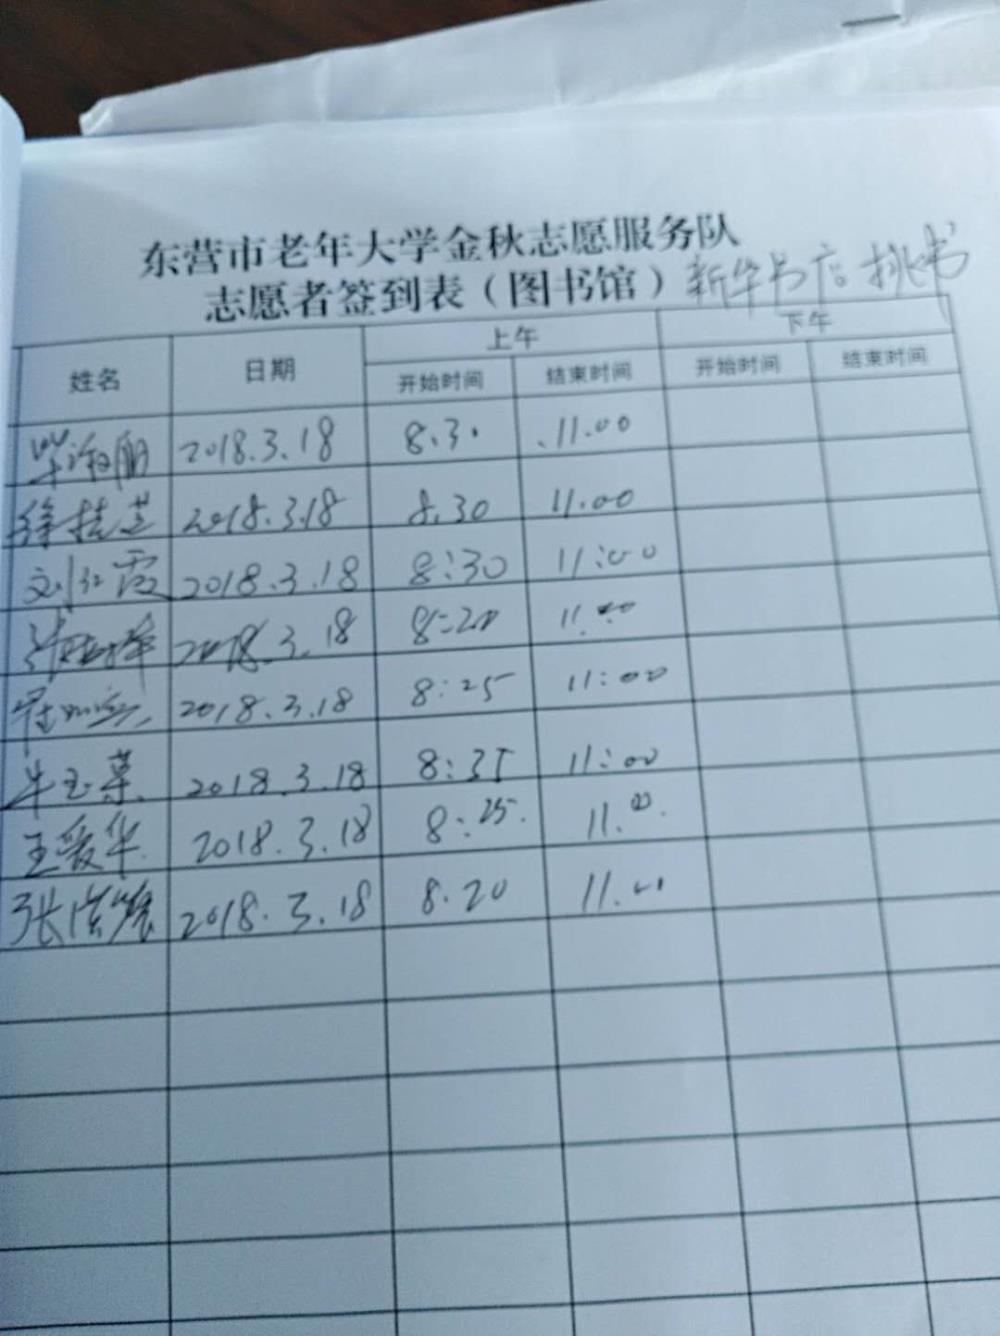 东营市老年大学金秋志愿服务队
志愿者签到表（图书馆）新华书店挑书
姓名 日期 上午 下午
开始时间 结束时间 开始时间 结束时间
2018.3.18 8.30 11.00
徐桂芝 2018.3.18 8.30 11.00
刘红霞 2018.3.18 8:30 11:00
2018.3.18 8:20 11.00
2018.3.18 8:25 11:00
牛玉菜 2018.3.18 8:35 11:00
王爱华 2018.3.18 8:25. 11.00.
张 2018.3.18 8.20 11.00